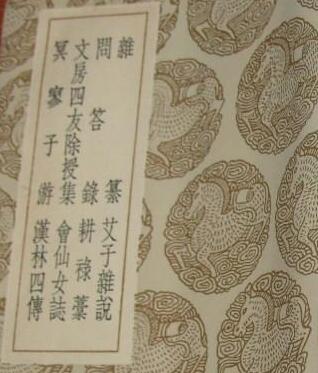 雜纂 艾子雜說
問答錄 耕祿藁
文房四友除授集 會仙女誌
冥寥子游 漢林四傳